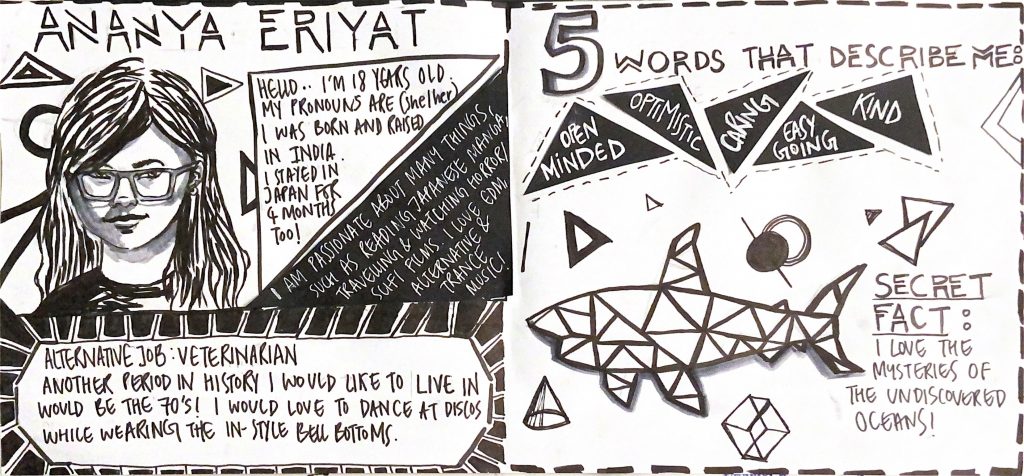 ANANYA ERIYAT
HELLO.. I'M 18 YEARS OLD.
MY PRONOUNS ARE (She/her)
I WAS BORN AND RAISED
IN INDIA.
I STAYED IN
JAPAN FOR
4 MONTHS
TOO!
I AM PASSIONATE ABOUT MANY THINGS,
SUCH AS READING JAPANESE MANGA,
TRAVELLING & WATCHING HORROR/
SCI-FI FILMS. I LOVE EDM,
ALTERNATIVE &
TRANCE
MUSIC!
ALTERNATIVE JOB: VETERINARIAN
ANOTHER PERIOD IN HISTORY I WOULD LIKE TO LIVE IN
WOULD BE THE 70'S! I WOULD LOVE TO DANCE AT DISCOS
WHILE WEARING THE IN-STYLE BELL BOTTOMS.
5 WORDS THAT DESCRIBE ME:
OPEN
MINDED
OPTIMISTIC
CARING
EASY
GOING
KIND
SECRET
FACT:
I LOVE THE
MYSTERIES OF
THE UNDISCOVERED
OCEANS!